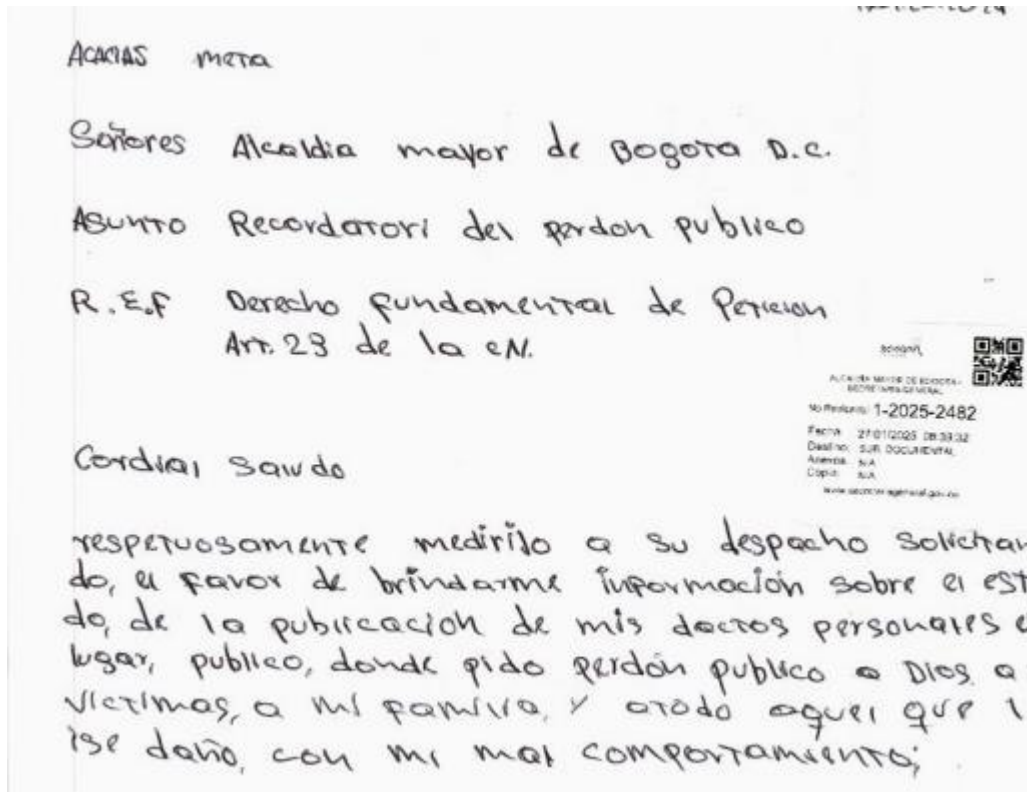 ACACIAS META
Señores Alcaldia mayor de Bogota D.C.
Asunto Recordatori del perdon publico
R.E.F Derecho fundamental de Peticion
Art. 23 de la CN.
BOGOTÁ
ALCALDIA MAYOR DE BOGOTA -
SECRETARIA GENERAL
No Radicado: 1-2025-2482
Fecha: 27/01/2025 08:39:32
Destino: SUR. DOCUMENTAL
Anexos: N/A
Copia: N/A
www.secretariageneral.gov.co
Cordial Saludo
respetuosamente medirijo a su despacho solicitan
do, el favor de brindarme información sobre el est
do, de la publicación de mis dactos personales e
lugar, publico, donde pido perdón publico a Dios a
victimas, a mi familia, y atodo aquel que l
ise daño, con mi mal comportamiento;